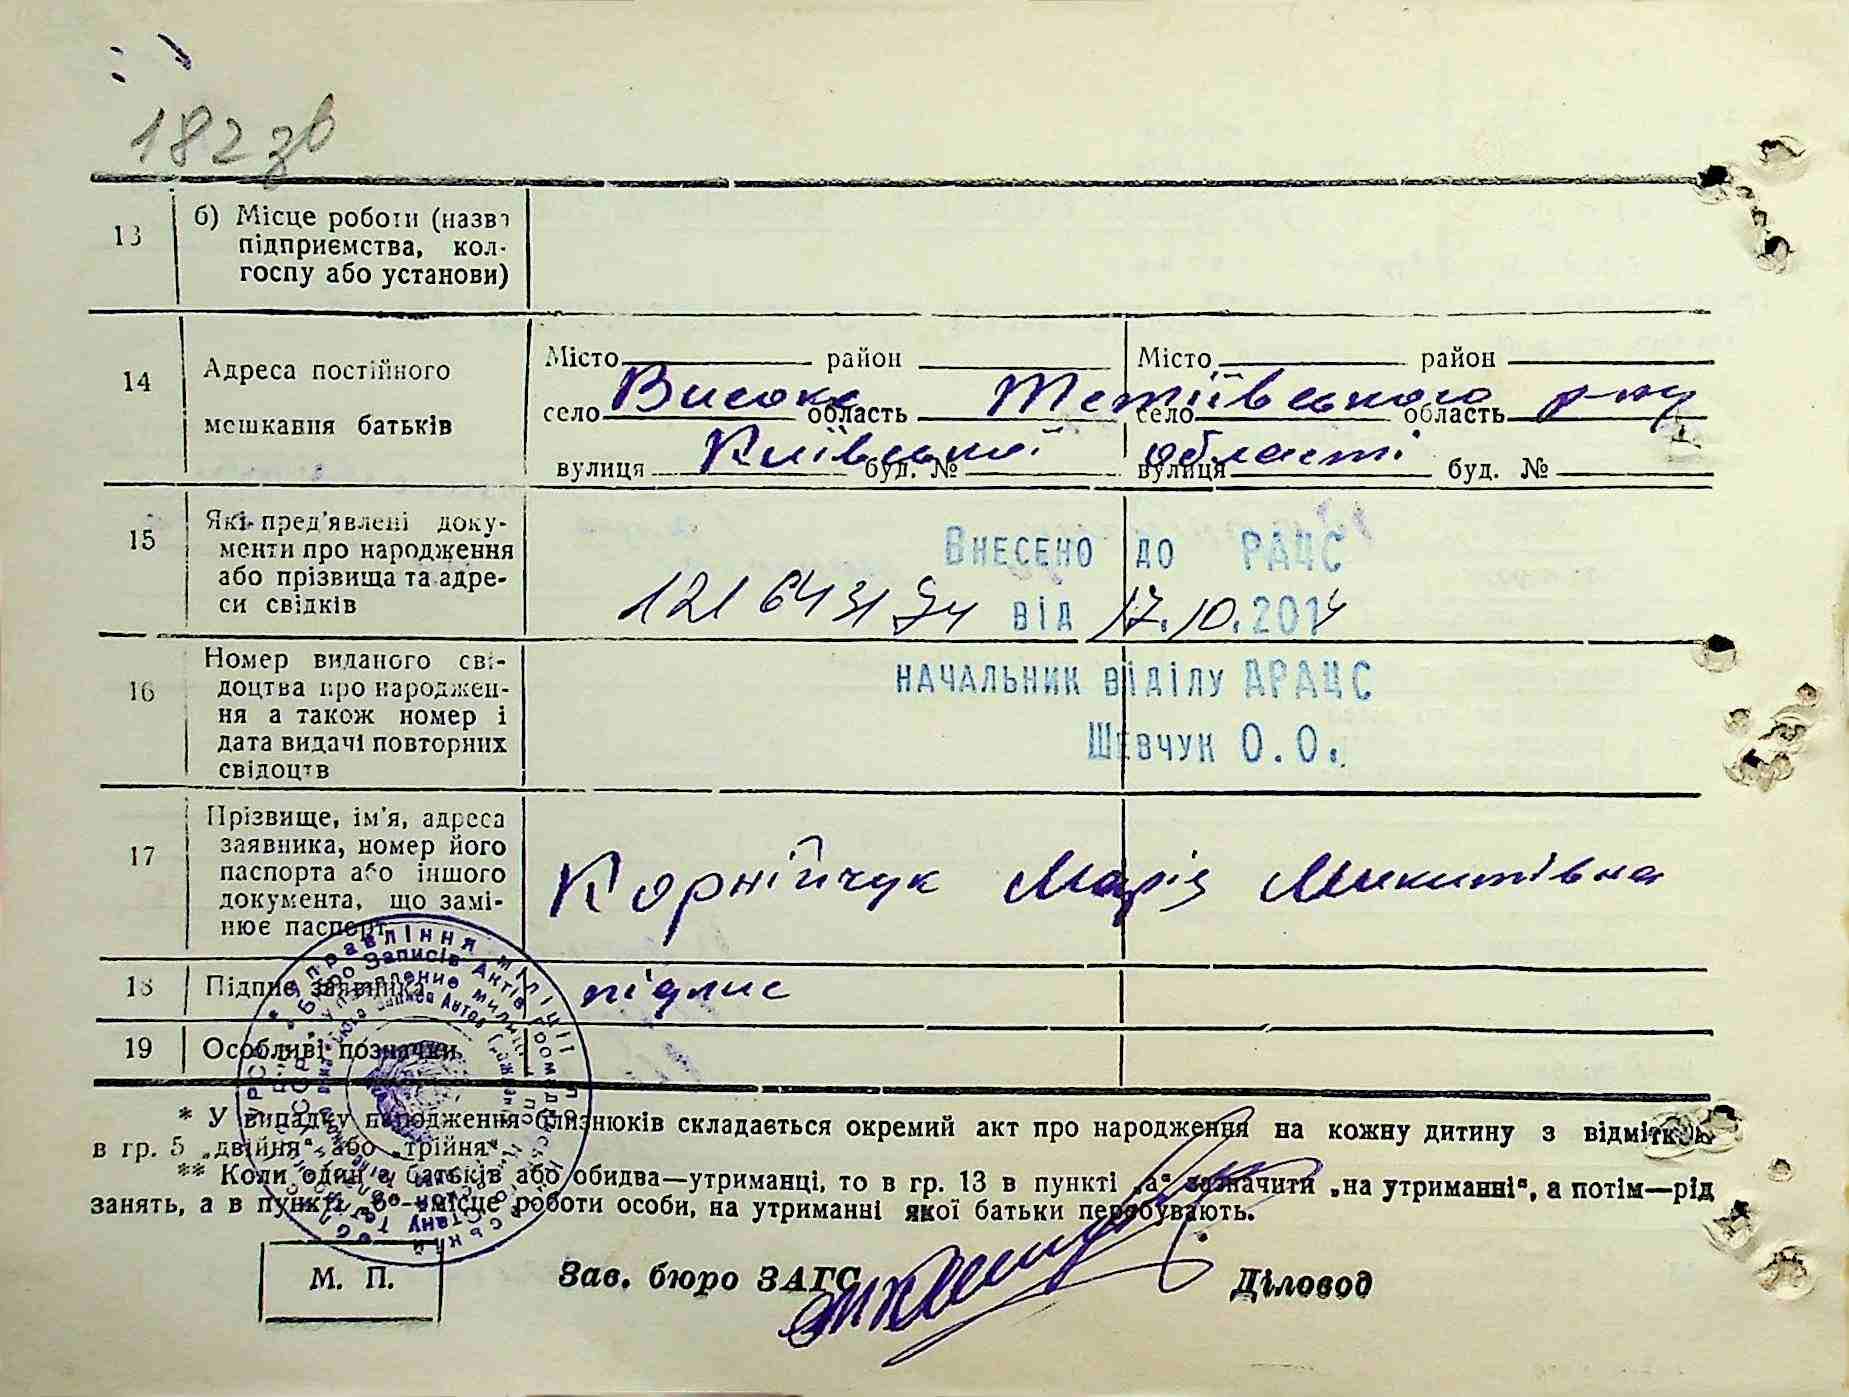 182 зв
13 б) Місце роботи (назва
підприємства, кол-
госпу або установи)
14 Адреса постійного
мешкання батьків
Місто район Місто район
село Високе область Тетіївського село область р-ну
вулиця Київської буд. № вулиця області буд. №
15 Які пред'явлені доку-
менти про народження
або прізвища та адре-
си свідків
Внесено до РАЦС
121643194 від 17.10.2014
16 Номер виданого сві-
доцтва про народжен-
ня а також номер і
дата видачі повторних
свідоцтв
начальник відділу ДРАЦС
Шевчук О.О.
17 Прізвище, ім'я, адреса
заявника, номер його
паспорта або іншого
документа, що замі-
нює паспорт
Корнійчук Марія Микитівна
18 Підпис заявника підпис
19 Особливі позначки
* У випадку народження близнюків складається окремий акт про народження на кожну дитину з відміткою
в гр. 5 „двійня“ або „трійня“.
** Коли один з батьків або обидва—утриманці, то в гр. 13 в пункті „а“ зазначити „на утриманні“, а потім—рід
занять, а в пункті „б“—місце роботи особи, на утриманні якої батьки перебувають.
М. П. Зав. бюро ЗАГС Діловод